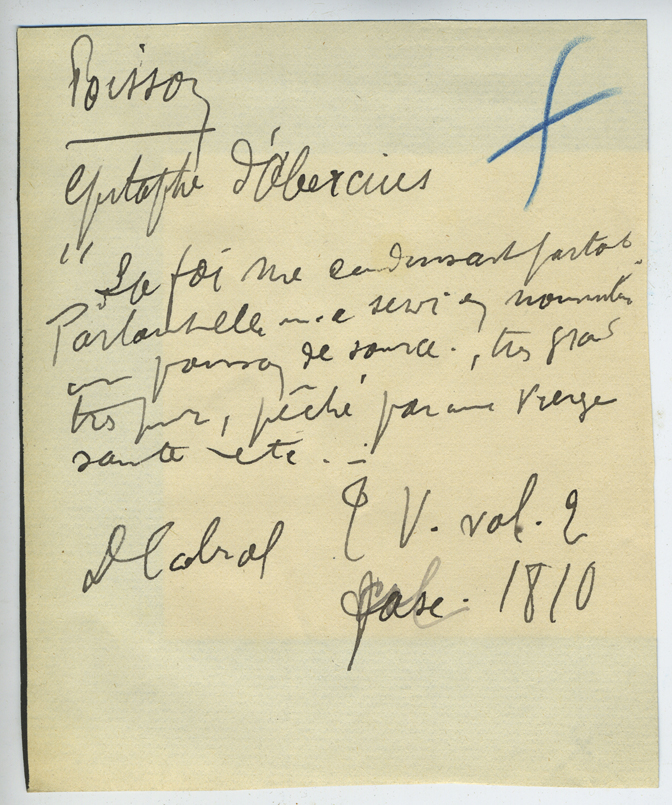 Poisson
Epitaphe d'Abercius
" La foi me conduisait partout.
Partout elle m'a servi en nourriture
un poisson de source, très grand
très pur, pêché par une vierge
sainte etc. –
D Cabrol T V. vol. 2
fasc. 1810